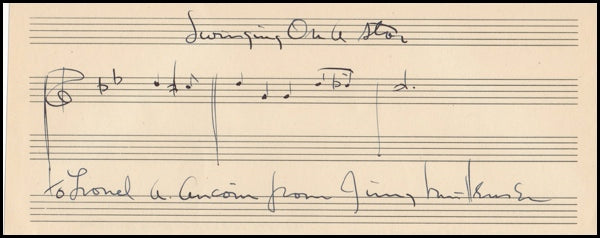 Swinging On A Star
to Lionel A. Aucoin from Jimmy Van Heusen